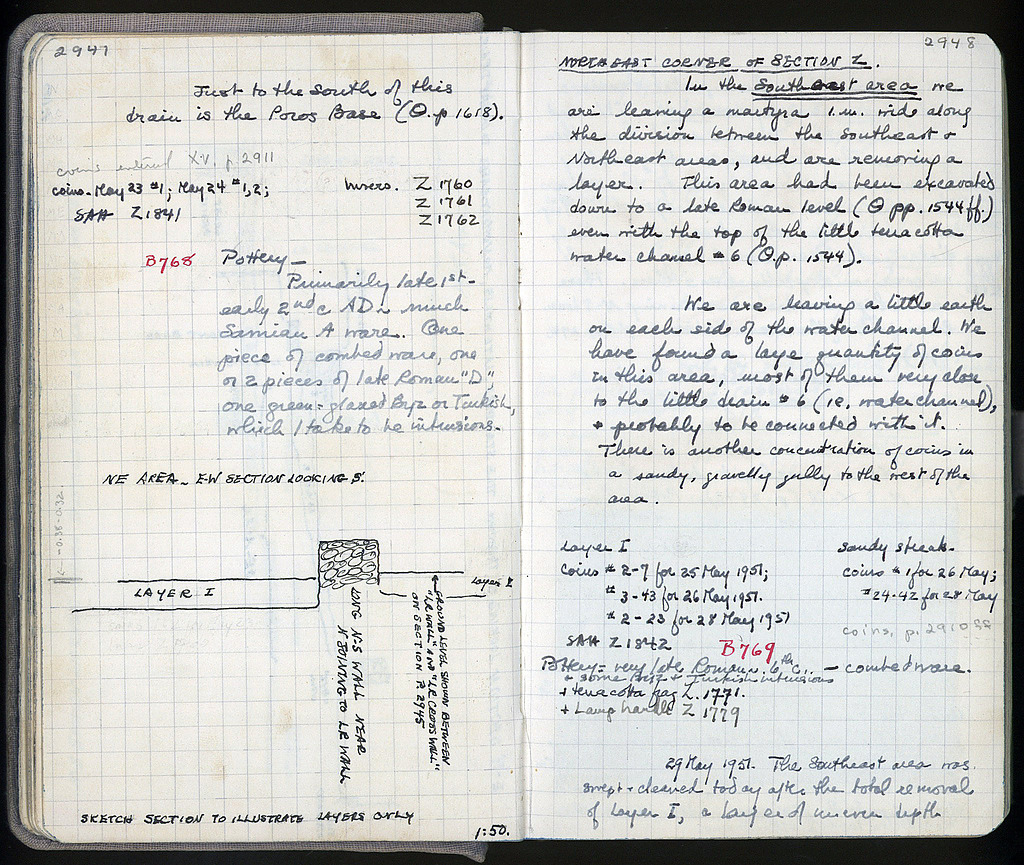 2947
Just to the south of this
drain is the Poros Base (Θ.p 1618).
coins entered XV. p. 2911
coins - May 23 #1; May 24 #1,2;
SAH Z 1841
Invers. Z 1760
Z 1761
Z 1762
B768 Pottery -
Primarily late 1st -
early 2nd c AD - much
Samian A ware. One
piece of combed ware, one
or 2 pieces of late Roman "D",
one green-glazed Byz or Turkish,
which I take to be intrusions.
NE AREA - E-W SECTION LOOKING S.
← -0.38-0.32
LAYER I
Layer I
LONG N-S WALL NEAR
N JOINING TO LR WALL
GROUND LEVEL SHOWN BETWEEN
"LR WALL" AND "LR CROSS WALL"
ON SECTION P. 2945
SKETCH SECTION TO ILLUSTRATE LAYERS ONLY
1:50.
2948
NORTHEAST CORNER OF SECTION Z.
In the Southeast area we
are leaving a martyra 1.m. wide along
the division between the Southeast +
Northeast areas, and are removing a
layer. This area had been excavated
down to a late Roman level (Θ pp. 1544 ff.)
even with the top of the little terracotta
water channel #6 (Θ.p. 1544).
We are leaving a little earth
on each side of the water channel. We
have found a large quantity of coins
in this area, most of them very close
to the little drain #6 (i.e. water channel),
+ probably to be connected with it.
There is another concentration of coins in
a sandy, gravelly gully to the west of the
area.
Layer I
coins #2-7 for 25 May 1951;
#3-43 for 26 May 1951.
#2-23 for 28 May 1951
SAH Z 1842
B769
Sandy streak -
coins #1 for 26 May;
#24-42 for 28 May
coins, p. 2910 ff
Pottery = very late Roman - 6th c. - combed ware.
+ some Byz + Turkish intrusions
+ terracotta frag Z. 1771.
+ Lamp handle Z 1779
29 May 1951. The Southeast area was
swept + cleaned today after the total removal
of Layer I, a layer of uneven depth